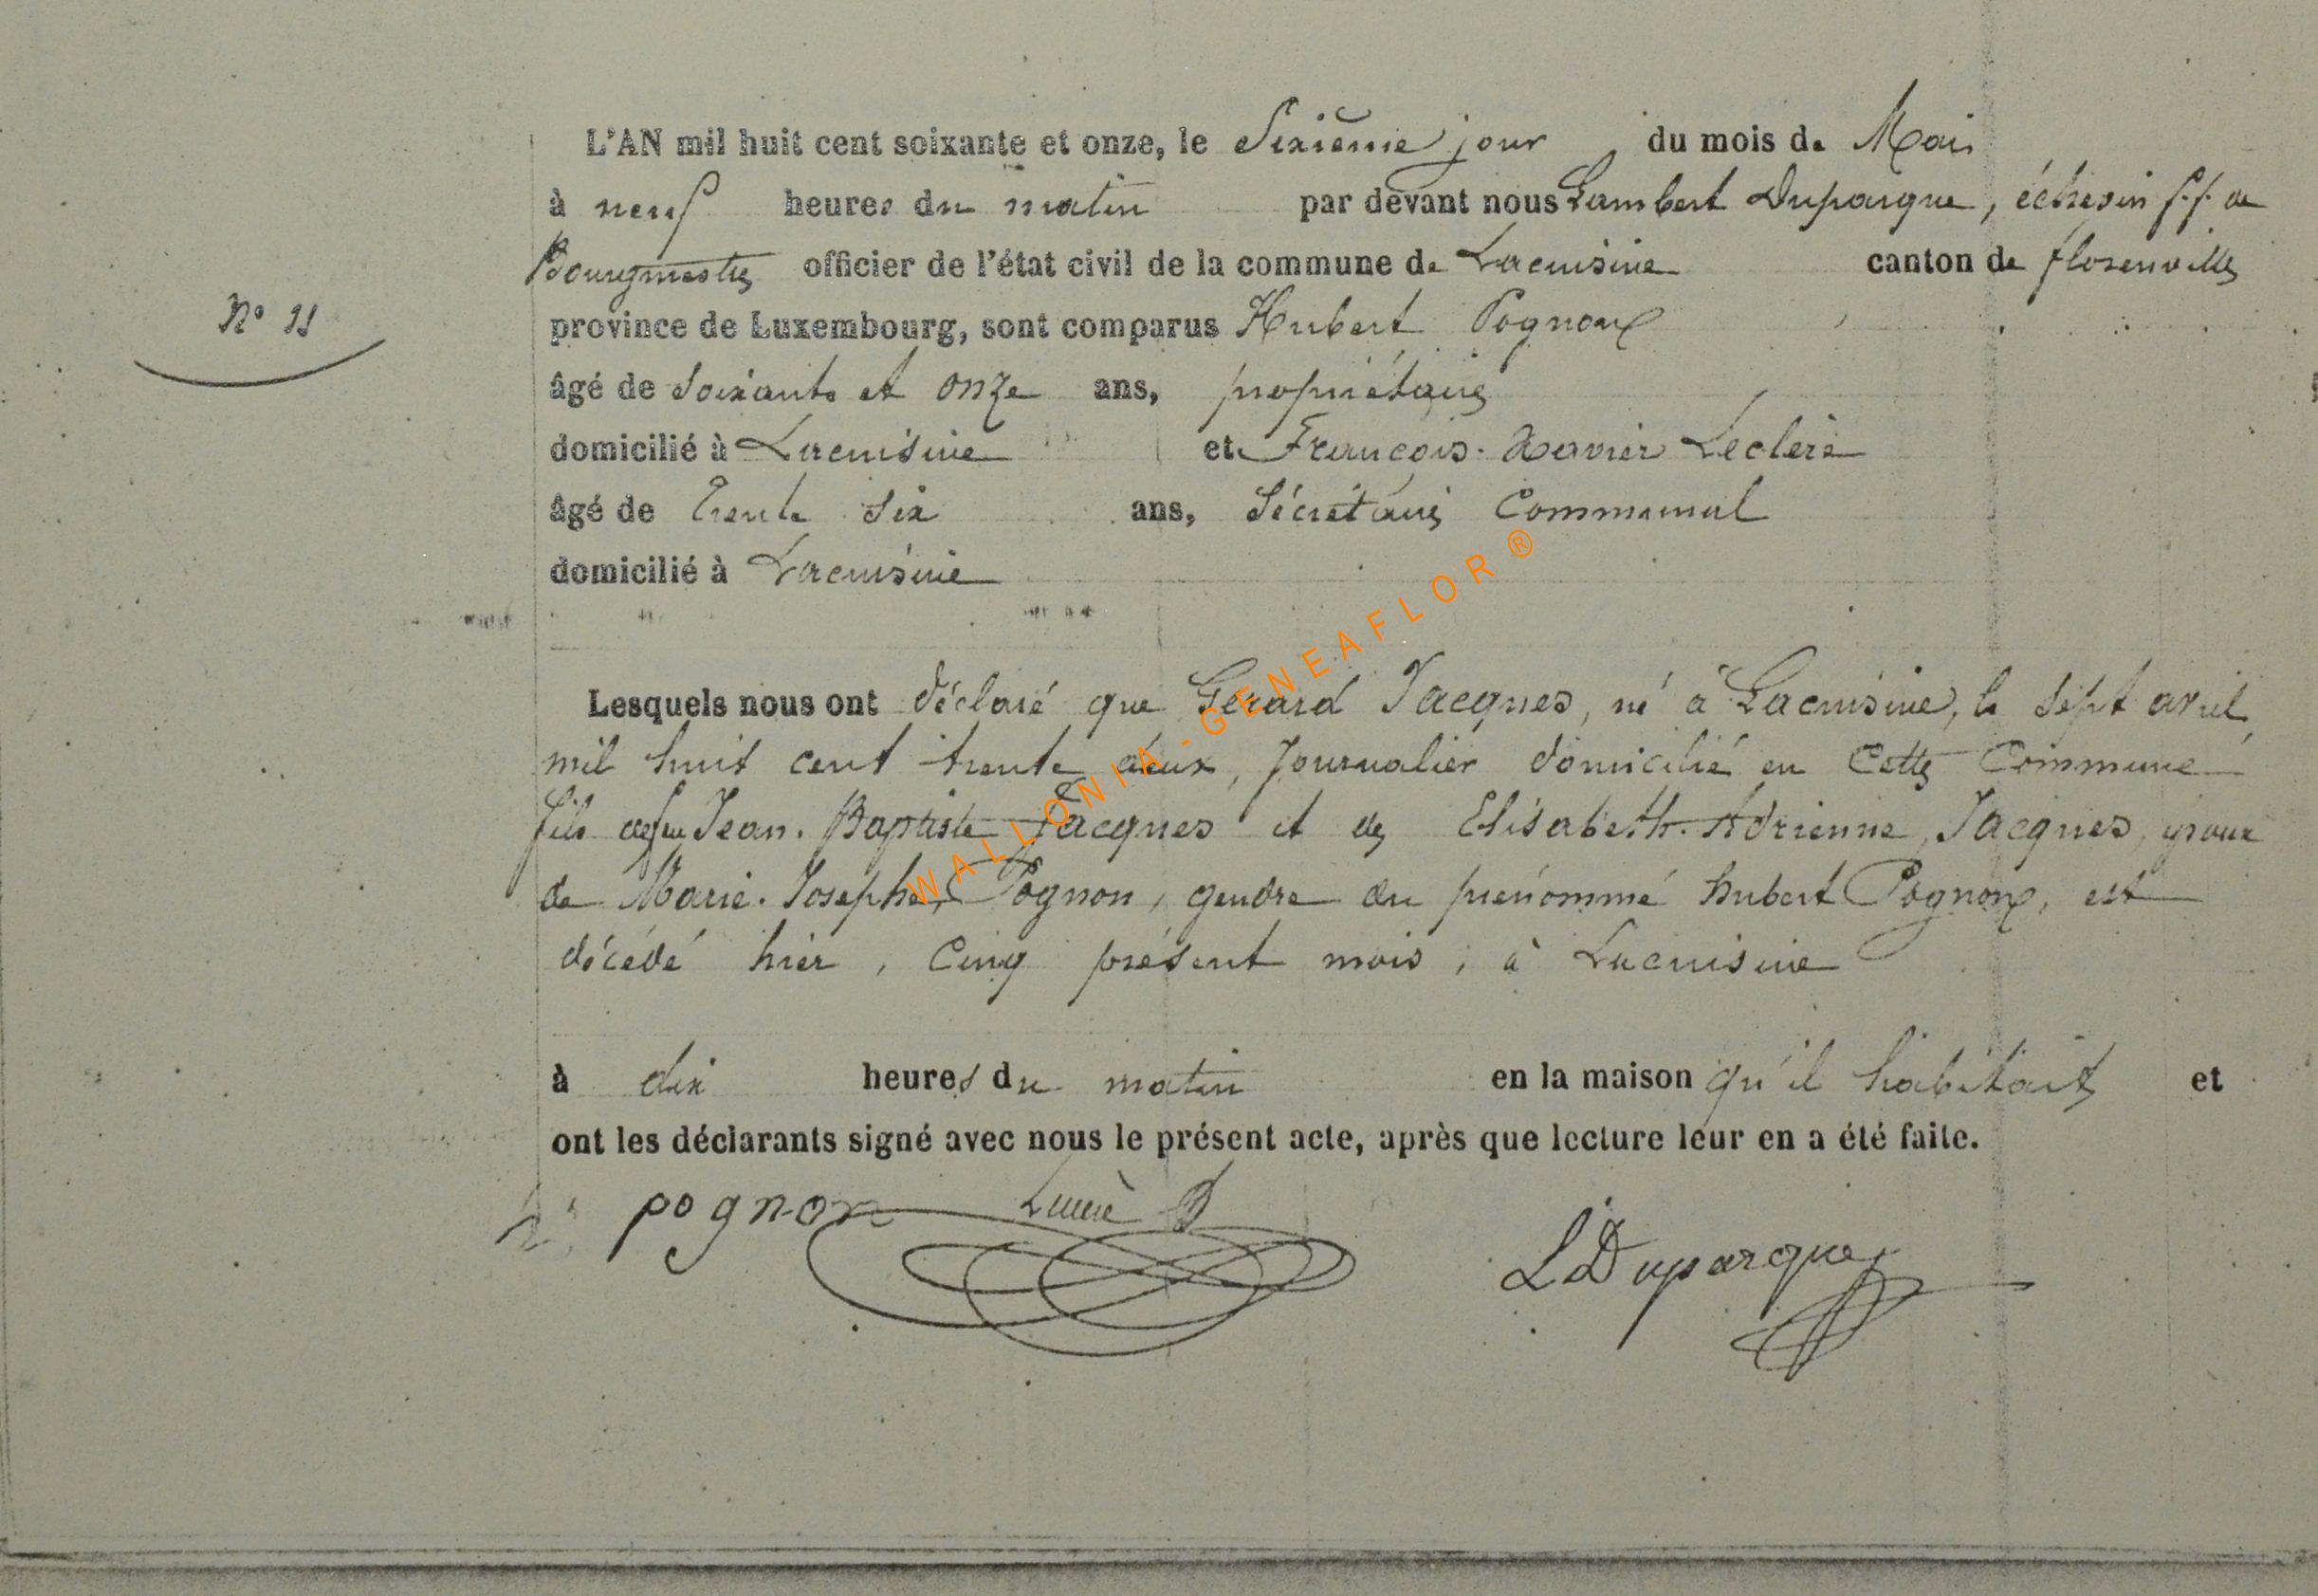 L'AN mil huit cent soixante et onze, le Sixième jour du mois de Mai
à neuf heures du matin par devant nous Lambert Duparque, échevin f.f. de
Bourgmestre officier de l'état civil de la commune de Lacuisine canton de florenville
N° 11
province de Luxembourg, sont comparus Hubert Pognon
âgé de Soixante et onze ans, propriétaire
domicilié à Lacuisine et François-Xavier Leclere
âgé de Trente Six ans, Sécrétaire Communal
domicilié à Lacuisine
Lesquels nous ont déclaré que Gerard Jacques, né à Lacuisine, le Sept avril
mil huit cent trente deux, Journalier domicilié en Cette Commune
fils de feu Jean-Baptiste Jacques et de Elisabeth-Adrienne Jacques, époux
de Marie-Josephe Pognon, gendre du prénommé hubert Pognon, est
décédé hier, Cinq présent mois, à Lacuisine
à dix heures du matin en la maison qu'il habitait et
ont les déclarants signé avec nous le présent acte, après que lecture leur en a été faite.
pognon
L Duparque
WALLONIA-GENEAFLOR®